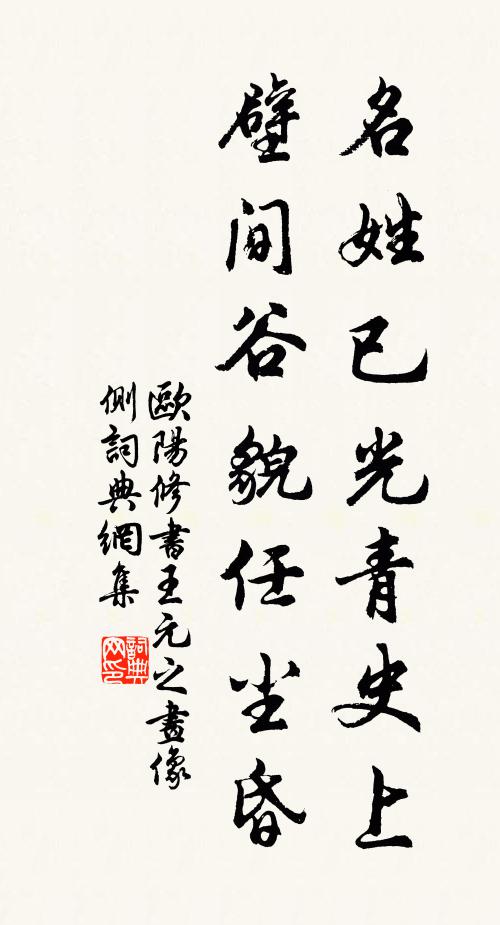 名姓已光青史上
壁间谷貌任尘昏
歐陽修書王元之畫像
側詞典網集
詞典网印